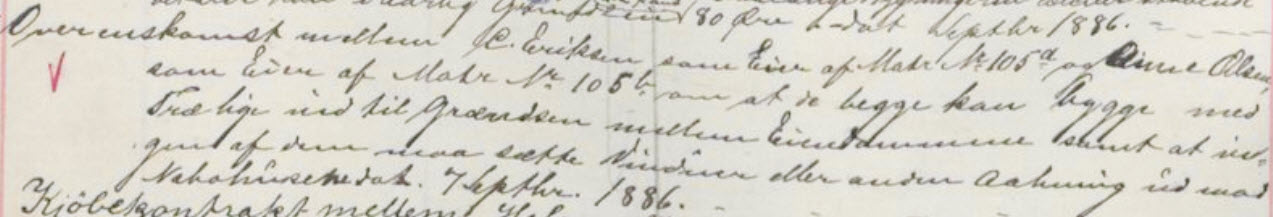 80 Øre dat Septbr 1886.
Overenskomst mellem C. Eriksen som Eier af Matr Nr 105a og Anne Olsen,
som Eier af Matr Nr 105b om at de begge kan bygge med
Træ lige ind til Grændsen mellem Eiendommene samt at in-
gen af dem maa sætte Vinduer eller anden Aabning ud mod
Nabohusene dat. 7 Septbr. 1886.
Kjöbekontrakt mellem